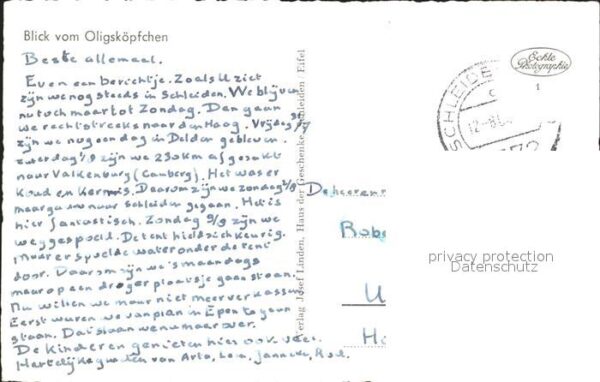 Blick vom Oligsköpfchen
Beste allemaal.
Even een berichtje. Zoals U ziet
zijn we nog steeds in Schleiden. We blijven
nu toch maar tot Zondag. Dan gaan
we rechtstreeks naar den Haag. Vrijdag 31/7
zijn we nog een dag in Delden gebleven.
zaterdag 1/8 zijn we 230 km afgezakt
naar Valkenburg (Camberg). Het was er
Koud en Kermis. Daarom zijn we zondag 2/8
maar naar Schleiden gegaan. Het is
hier fantastisch. Zondag 9/8 zijn we
weggespoeld. De tent hield zich keurig.
Maar er spoelde water onder de tent
door. Daarom zijn we 's maandags
maar op een droger plaatsje gaan staan.
Nu willen we maar niet meer verkassen
Eerst waren we van plan in Epen te gaan
staan. Dat slaan we nu maar over.
De Kinderen genieten hier ook veel.
Hartelijke groeten van
Verlag Josef Linden, Haus der Geschenke, Schleiden / Eifel
Echte
Photographie
SCHLEIDE
12-8
1
De heer en
Bobe
U
H
privacy protection
Datenschutz